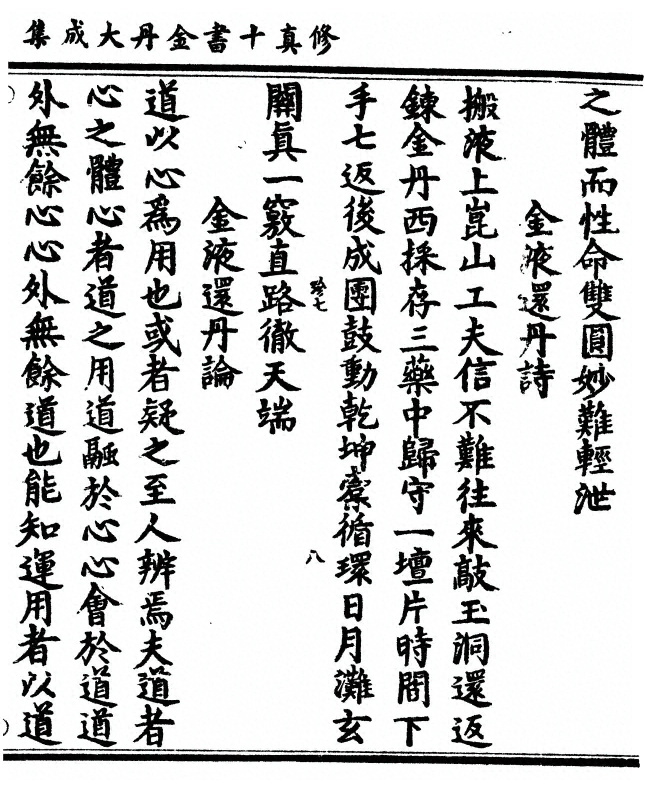 修真十書金丹大成集
之體而性命雙圓妙難輕泄
金液還丹詩
搬液上崑山工夫信不難往來敲玉洞還返
鍊金丹西採存三藥中歸守一壇片時間下
手七返後成團鼓動乾坤橐循環日月灘玄
珍七
八
關真一竅直路徹天端
金液還丹論
道以心爲用也或者疑之至人辨焉夫道者
心之體心者道之用道融於心心會於道道
外無餘心心外無餘道也能知運用者以道